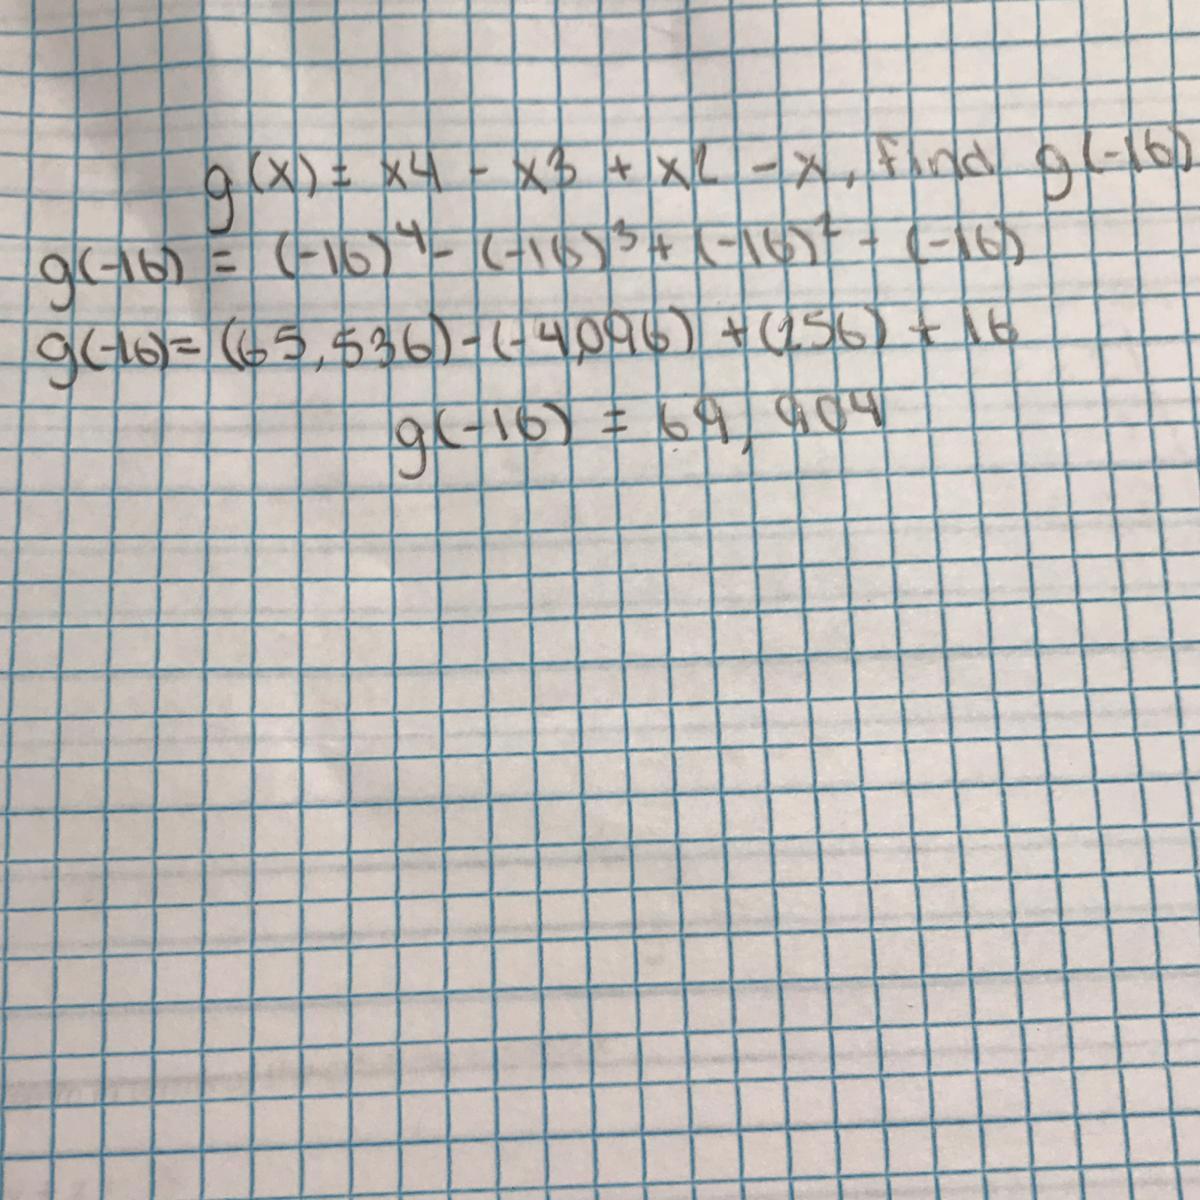 g(x) = x4 - x3 + x2 - x, find g(-16)
g(-16) = (-16)⁴ - (-16)³ + (-16)² - (-16)
g(-16) = (65,536) - (-4,096) + (256) + 16
g(-16) = 69,904